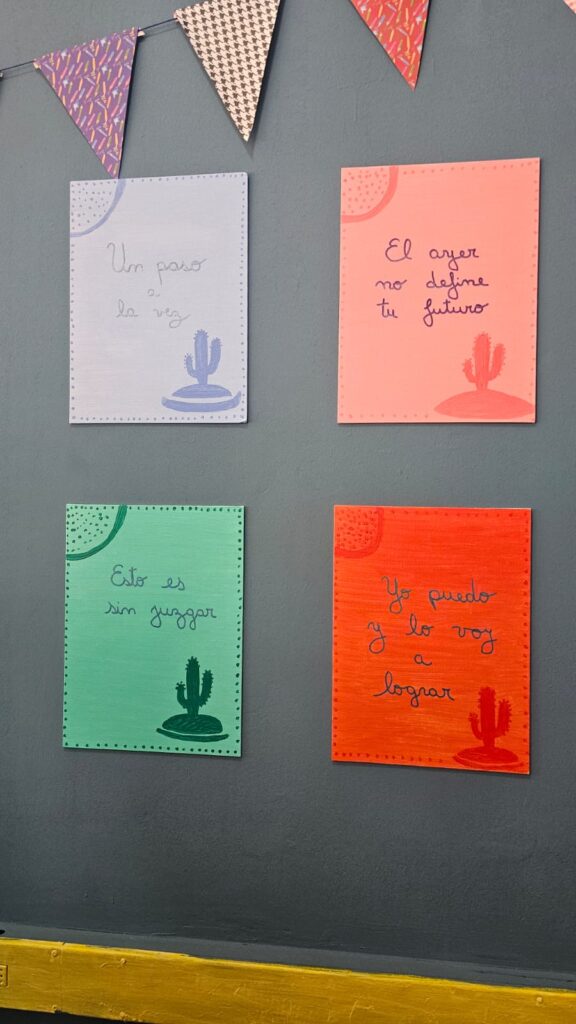 Un paso
a
la vez
El ayer
no define
tu futuro
Esto es
sin juzgar
Yo puedo
y lo voy
a
lograr